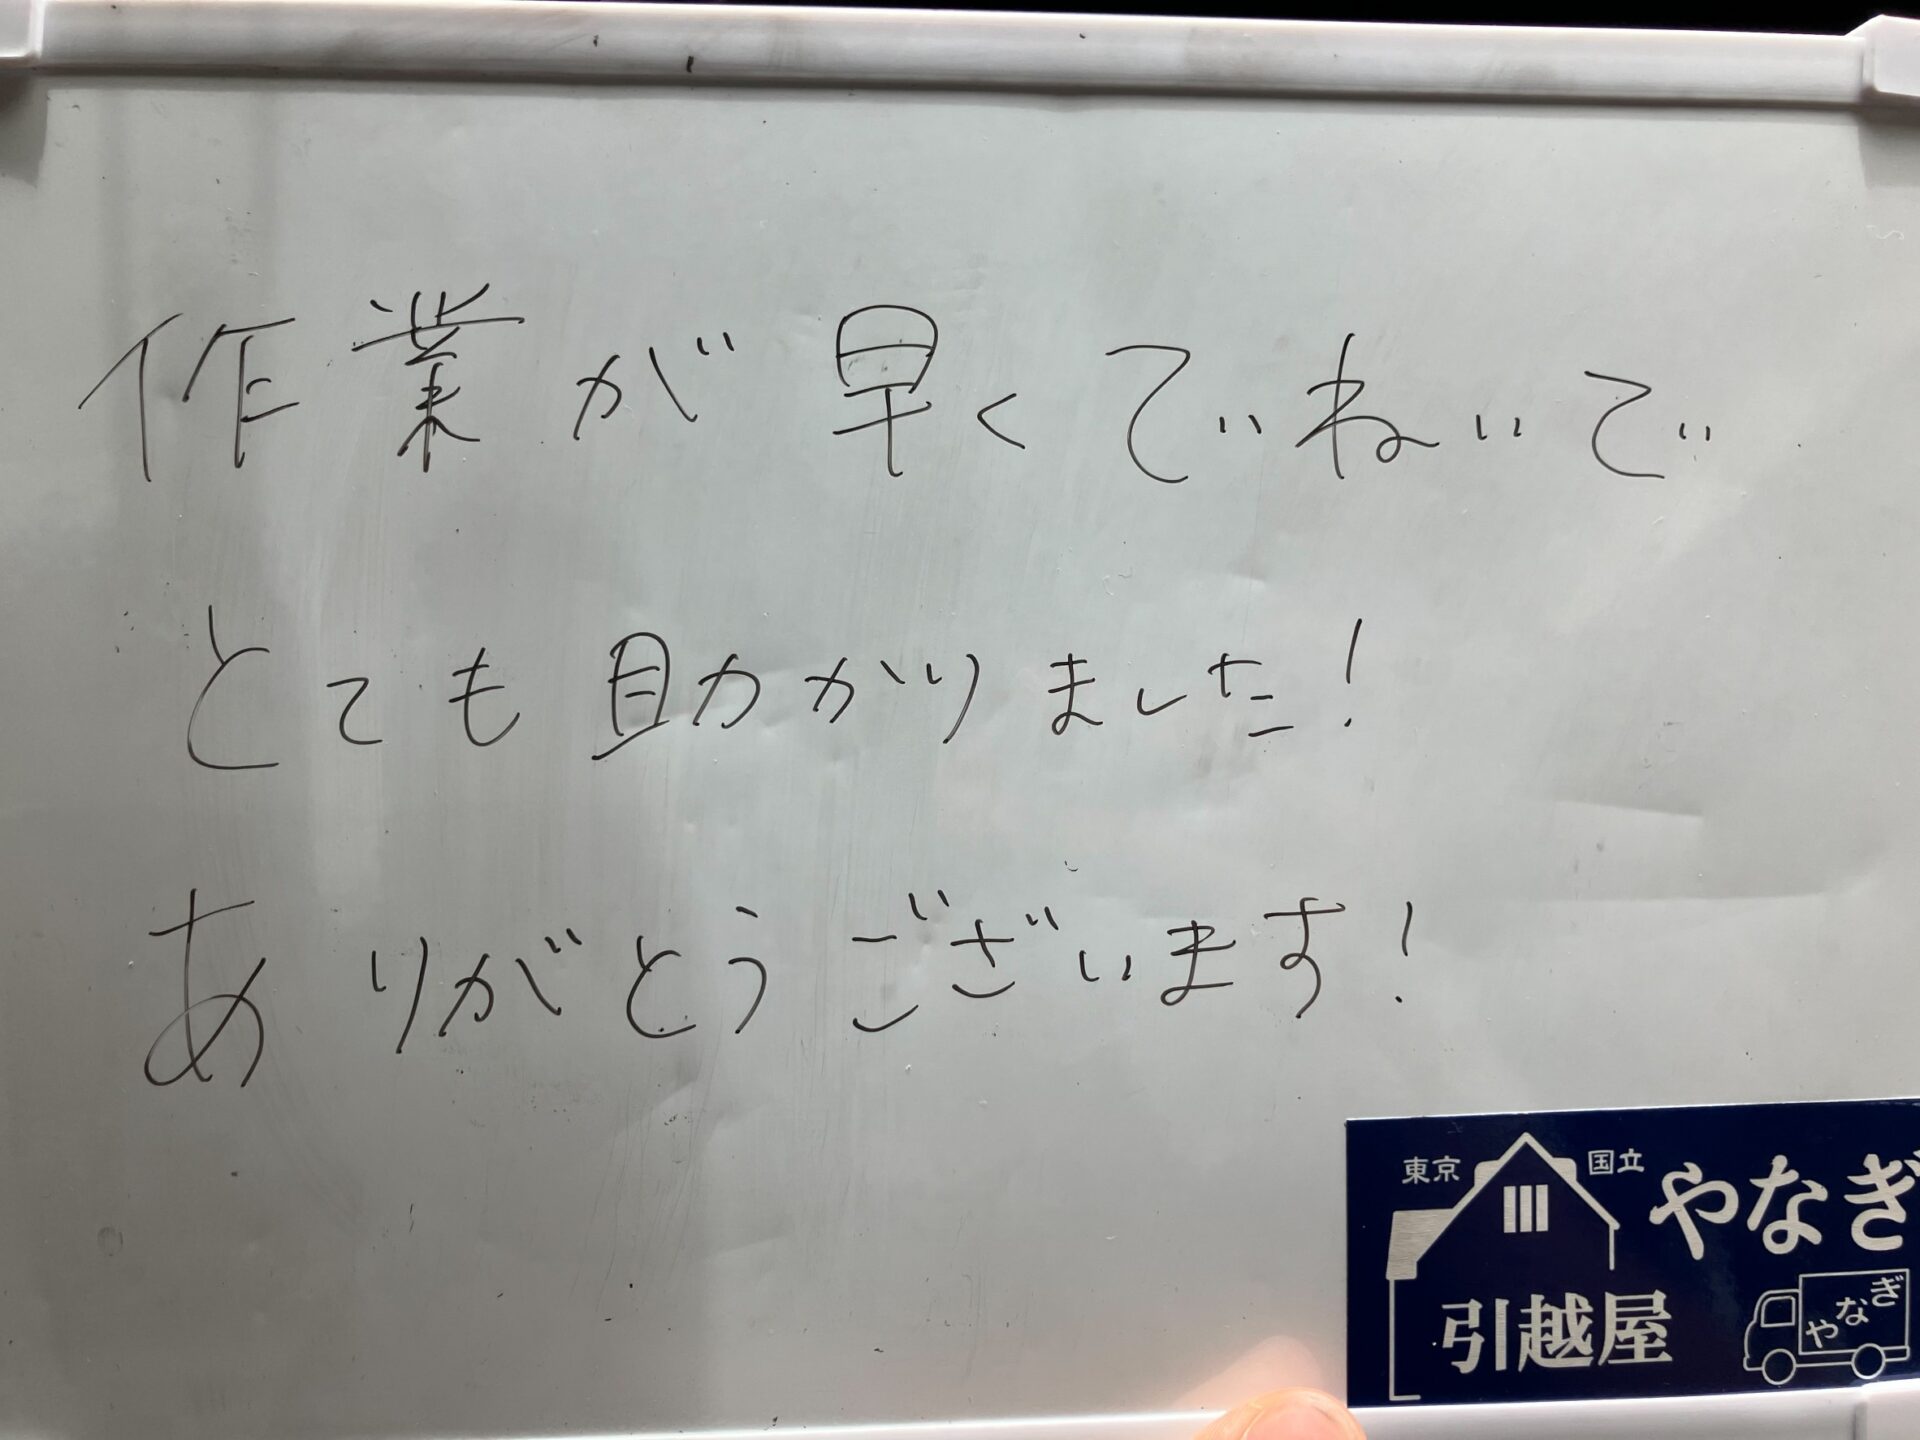 作業が早くてぃねいで
とても助かりました!
ありがとうございます!
東京 国立 やなぎ
引越屋
やなぎ